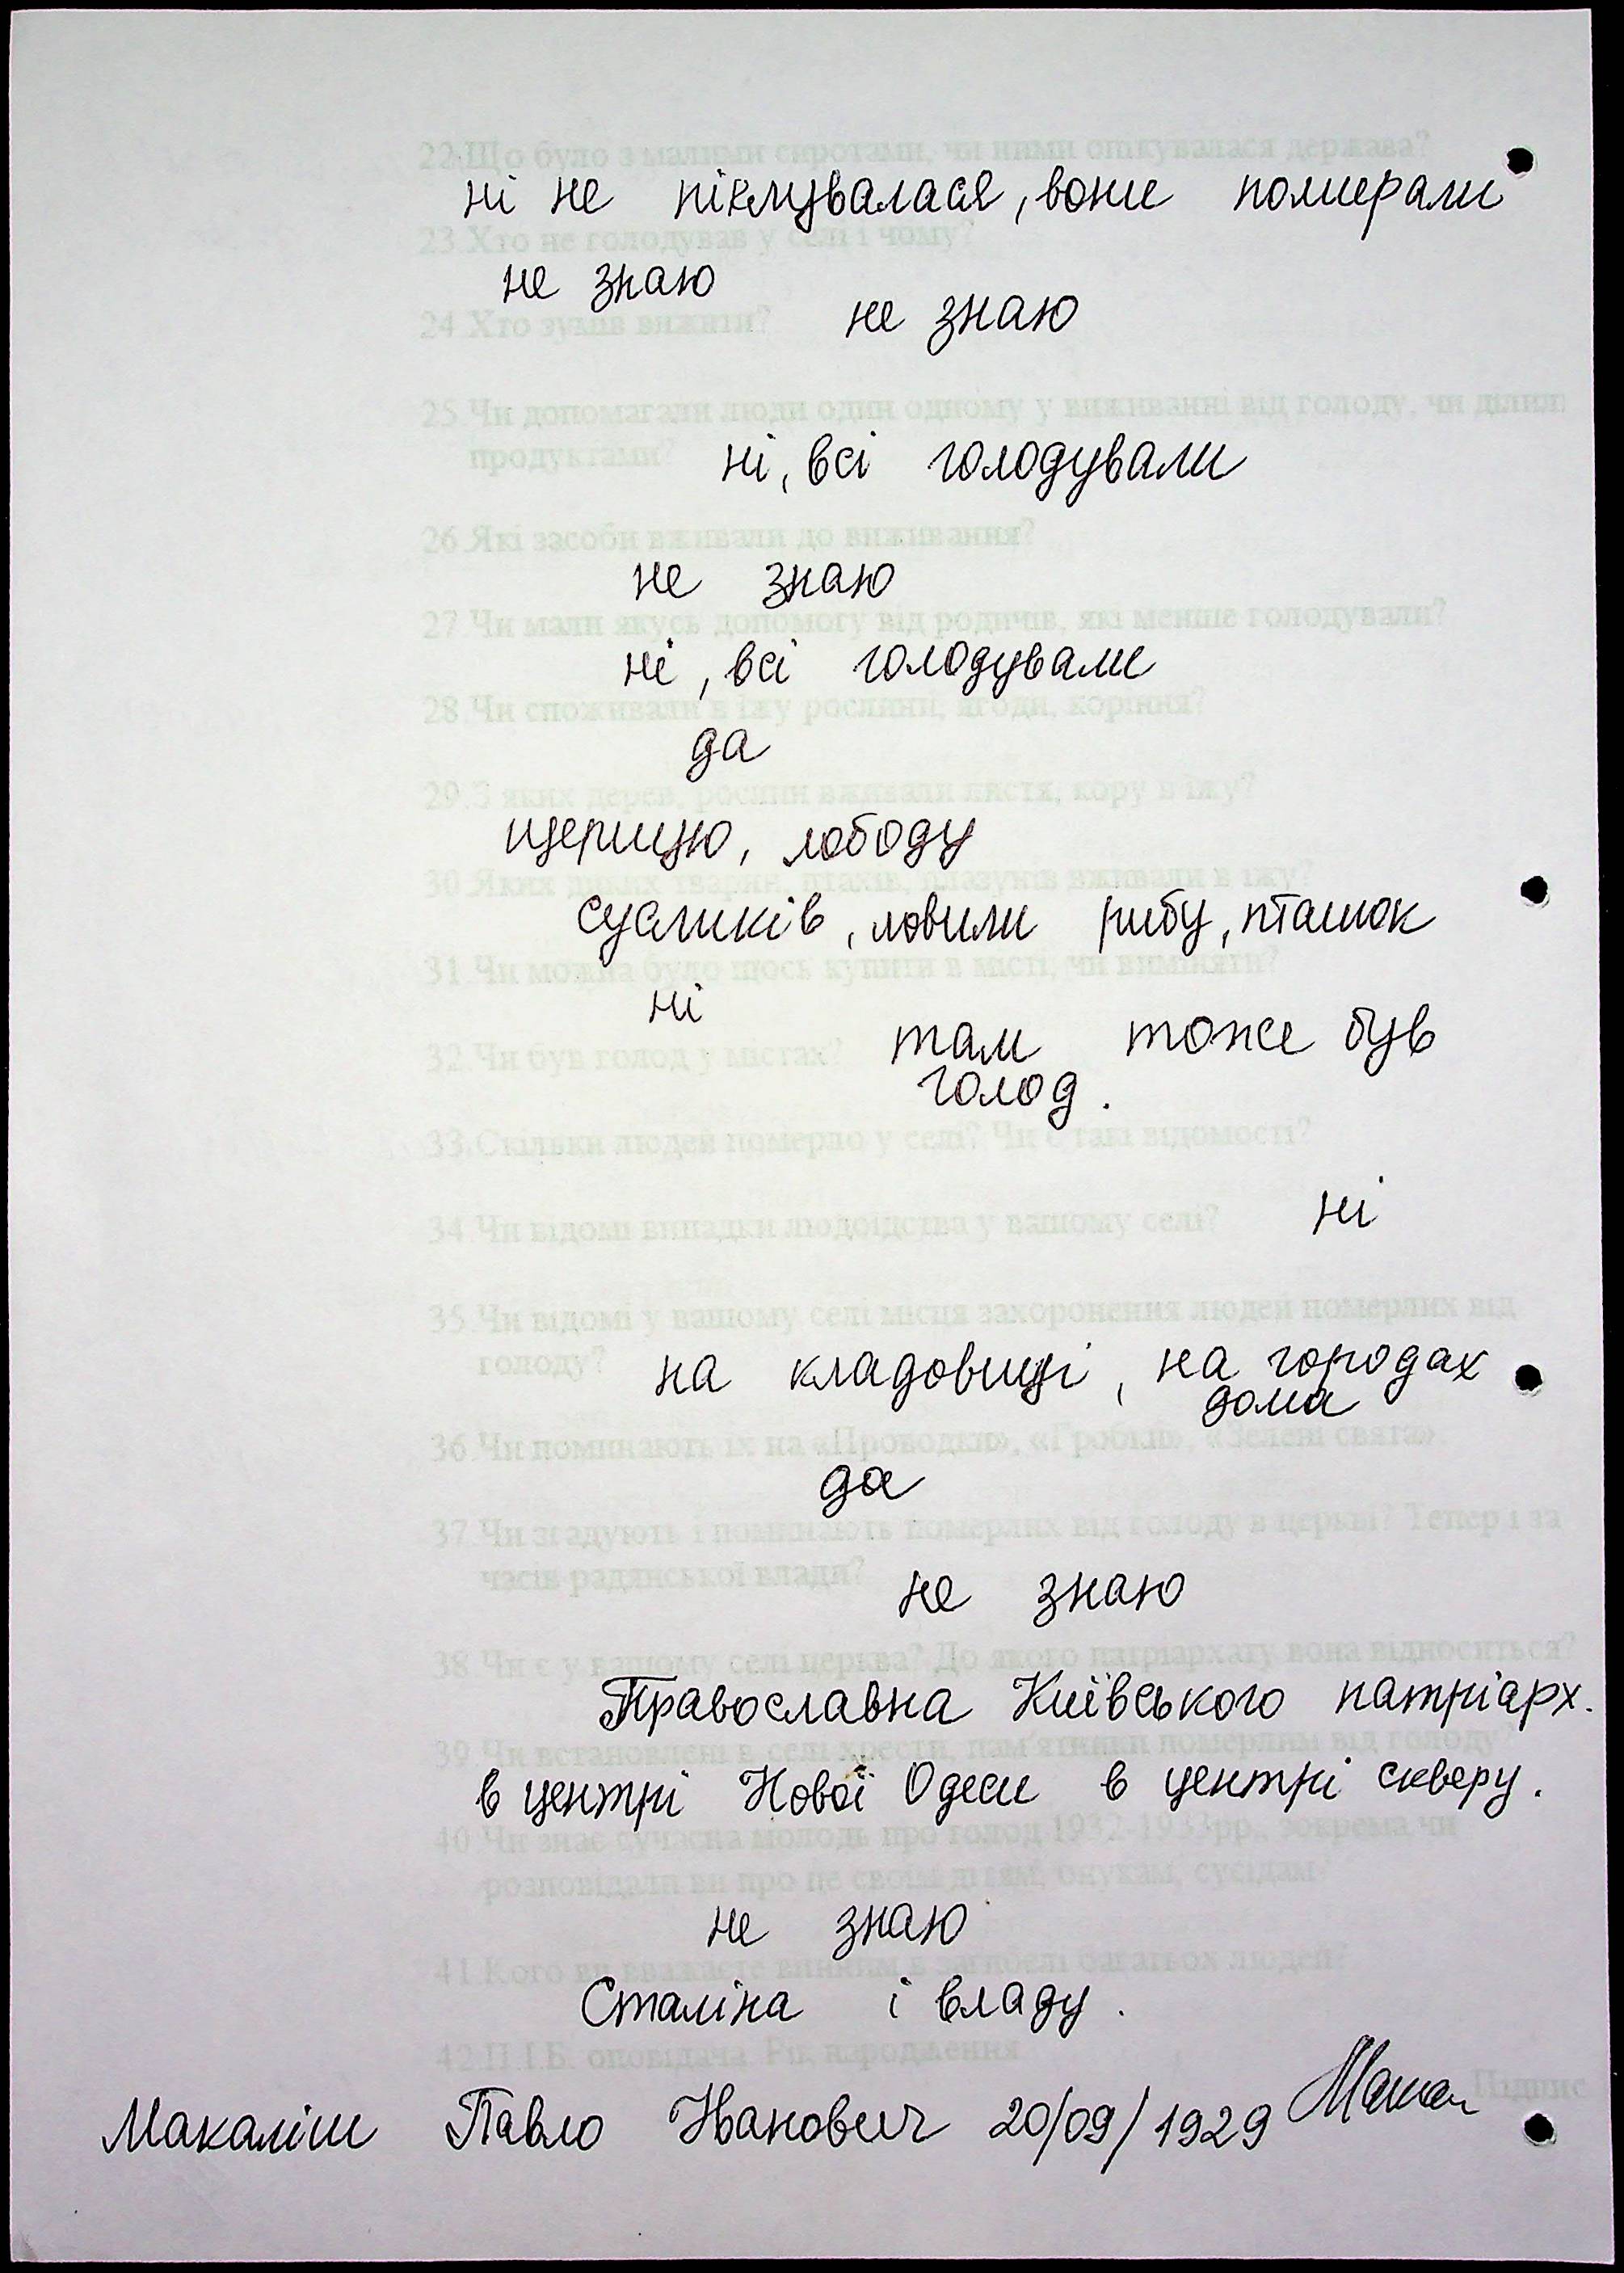 22.Що було з малими сиротами, чи ними опікувалася держава?
ні не піклувалася, вони помирали
23.Хто не голодував у селі і чому?
не знаю
24.Хто зумів вижити? не знаю
25.Чи допомагали люди один одному у виживанні від голоду, чи ділили
продуктами? ні, всі голодували
26.Які засоби вживали до виживання?
не знаю
27.Чи мали якусь допомогу від родичів, які менше голодували?
ні, всі голодували
28.Чи споживали в їжу рослини, ягоди, коріння?
да
29.З яких дерев, рослин вживали листя, кору в їжу?
щерицю, лободу
30.Яких диких тварин, птахів, плазунів вживали в їжу?
сусликів, ловили рибу, пташок
31.Чи можна було щось купити в місті, чи виміняти?
ні
32.Чи був голод у містах? там тоже був
голод.
33.Скільки людей померло у селі? Чи є такі відомості?
34.Чи відомі випадки людоїдства у вашому селі? ні
35.Чи відомі у вашому селі місця захоронення людей померлих від
голоду? на кладовищі, на городах
дома
36.Чи поминають їх на «Проводки», «Гробки», «Зелені свята».
да
37.Чи згадують і поминають померлих від голоду в церкві? Тепер і за
часів радянської влади?
не знаю
38.Чи є у вашому селі церква? До якого патріархату вона відноситься?
Православна Київського патріарх.
39.Чи встановлені в селі хрести, пам'ятники померлим від голоду?
в центрі Нової Одеси в центрі скверу.
40.Чи знає сучасна молодь про голод 1932-1933рр., зокрема чи
розповідали ви про це своїм дітям, онукам, сусідам?
не знаю
41.Кого ви вважаєте винним в загибелі багатьох людей?
Сталіна і владу.
42.П.І.Б. оповідача. Рік народження
Підпис
Макаліш Павло Іванович 20/09/1929